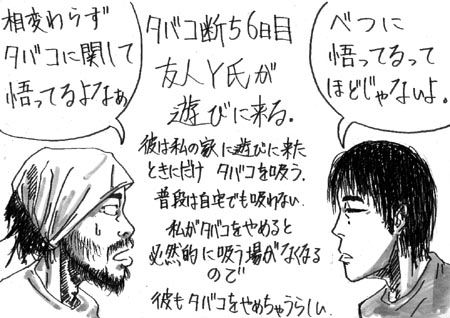 相変わらず
タバコに関して
悟ってるよなぁ
タバコ断ち6日目
友人Y氏が
遊びに来る.
彼は私の家に遊びに来た
ときにだけ タバコを吸う.
普段は自宅でも吸わない.
私がタバコをやめると
必然的に吸う場がなくなる
ので
彼もタバコをやめちゃうらしい.
べつに
悟ってるって
ほどじゃないよ。